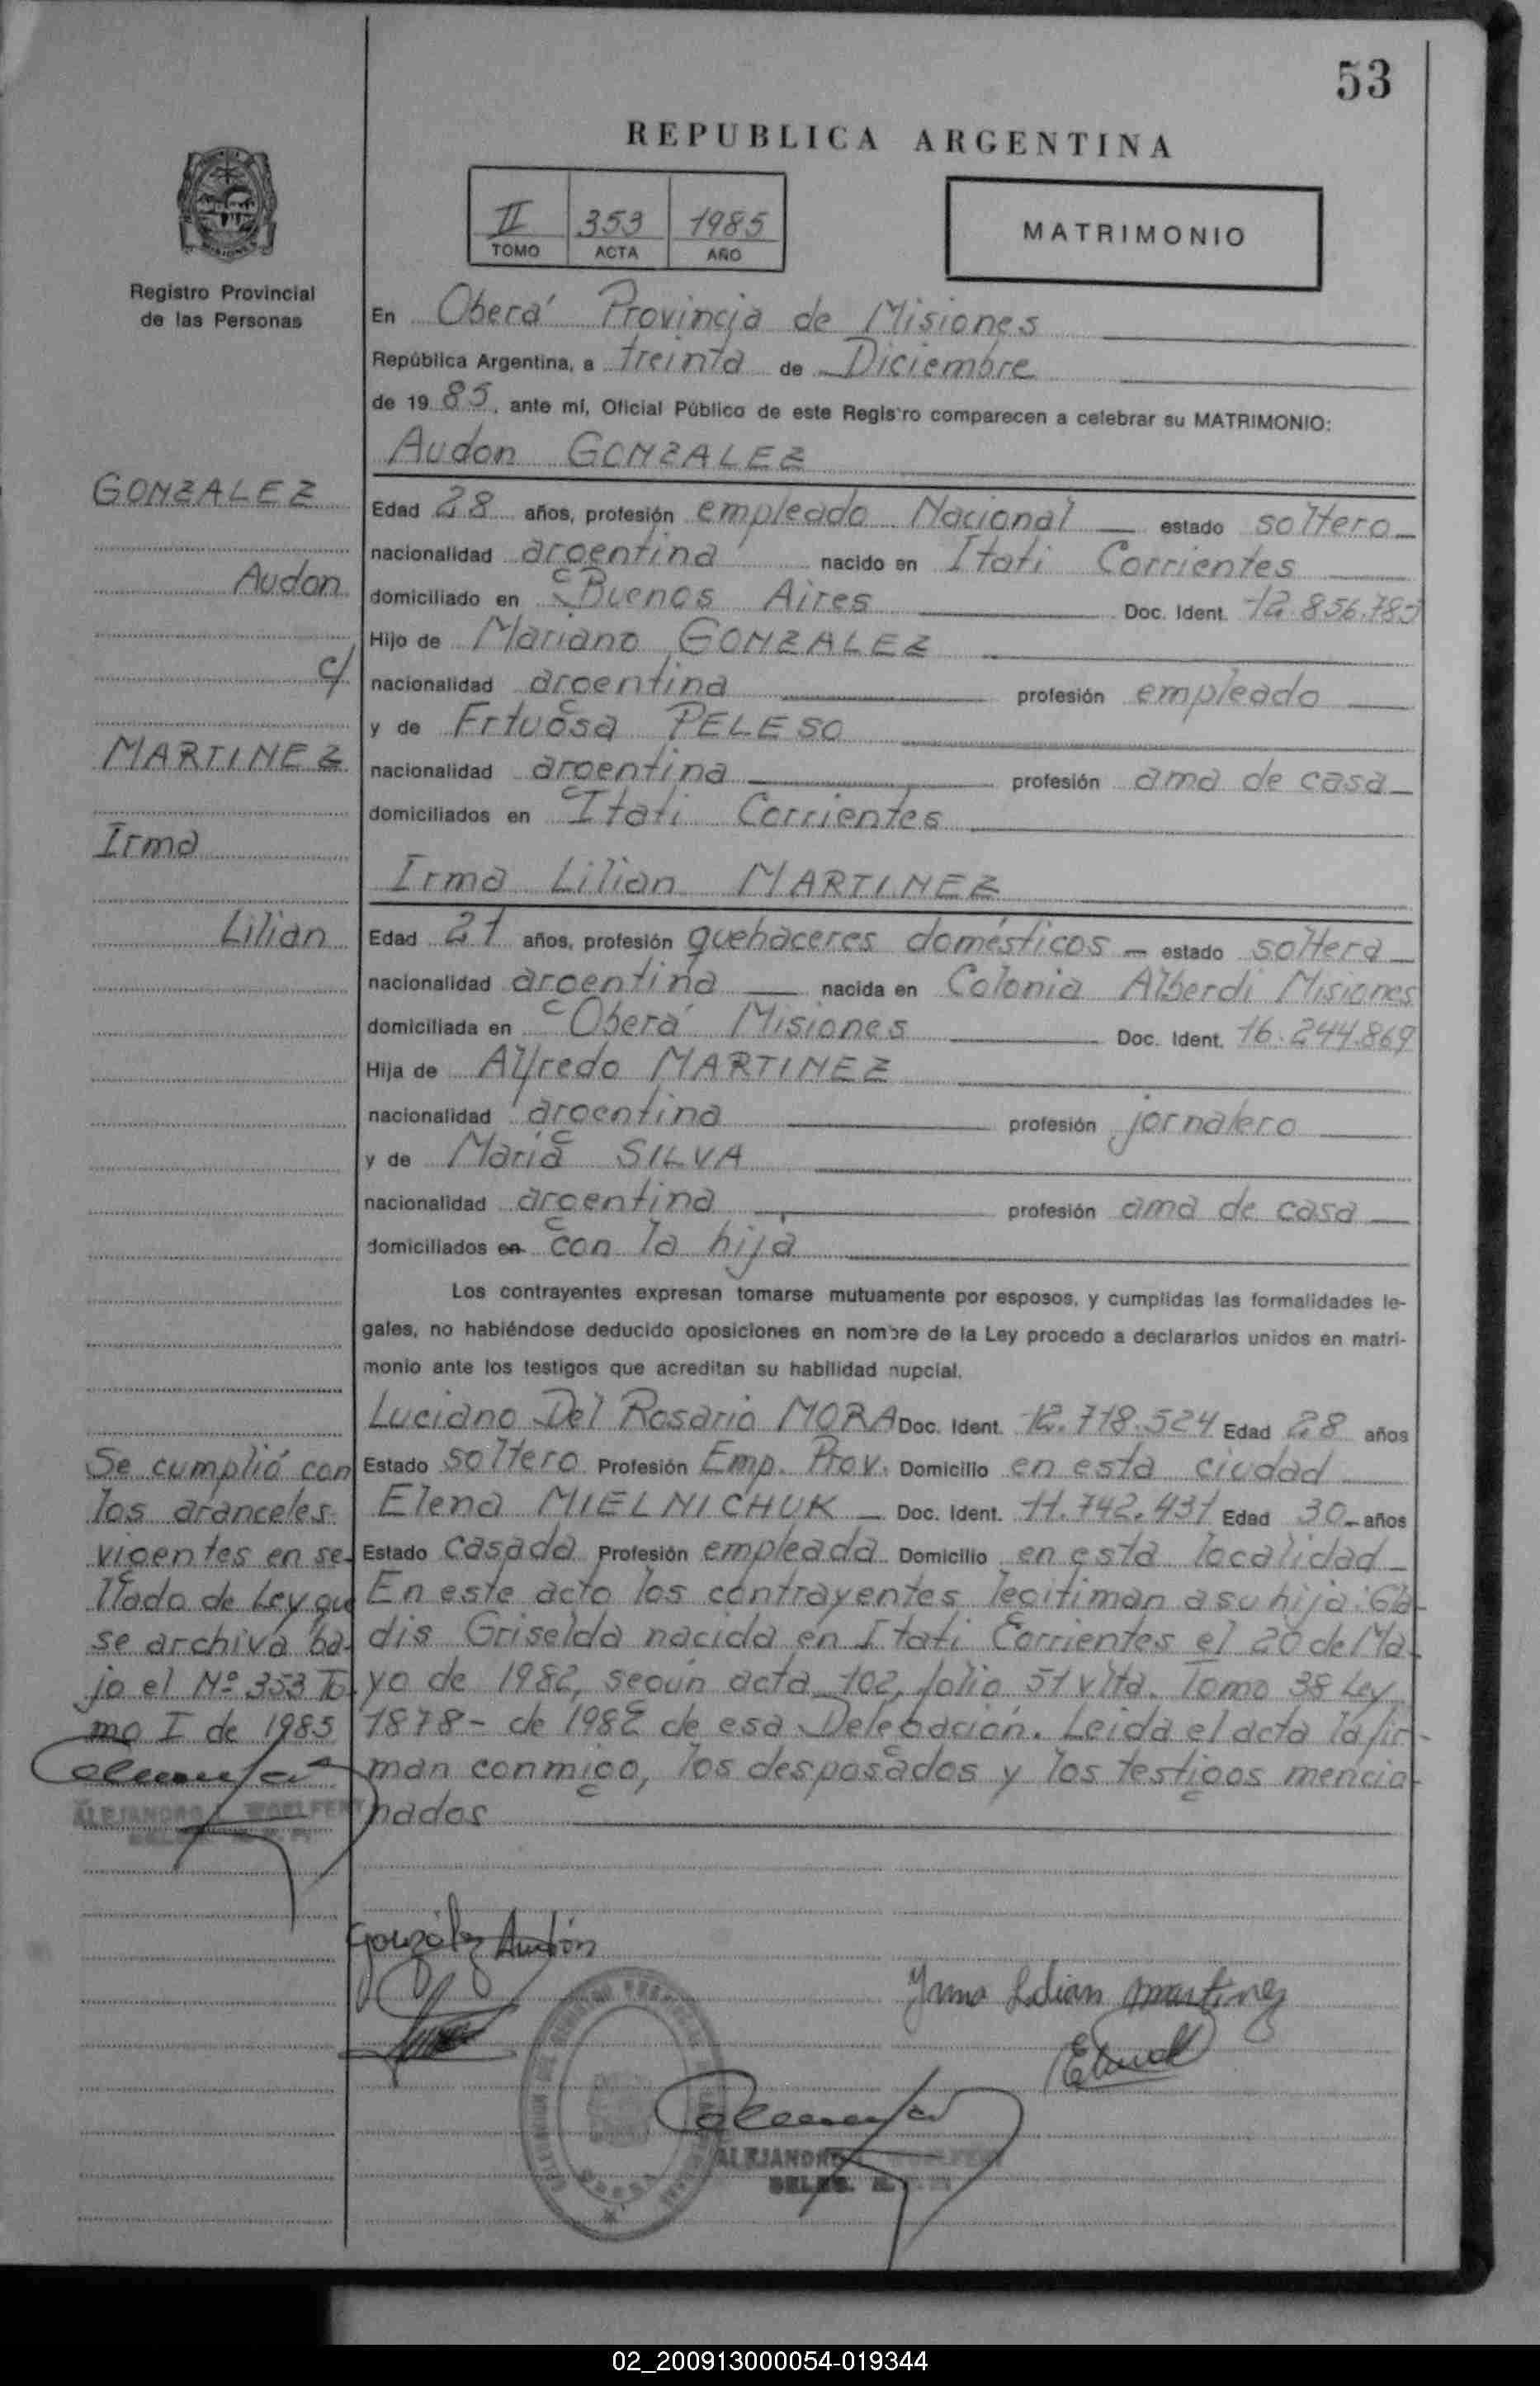 53
REPUBLICA ARGENTINA
II 353 1985
TOMO ACTA AÑO
MATRIMONIO
Registro Provincial
de las Personas
En Oberá Provincia de Misiones
República Argentina, a treinta de Diciembre
de 19 85, ante mí, Oficial Público de este Registro comparecen a celebrar su MATRIMONIO:
Audon GONZALEZ
Edad 28 años, profesión empleado Nacional estado soltero
nacionalidad argentina nacido en Itati Corrientes
domiciliado en Buenos Aires Doc. Ident.
Hijo de Mariano GONZALEZ
nacionalidad argentina profesión empleado
y de Frtuosa PELESO
nacionalidad argentina profesión ama de casa
domiciliados en Itati Corrientes
Irma Lilian MARTINEZ
Edad 21 años, profesión quehaceres domésticos - estado soltera
nacionalidad argentina nacida en Colonia Alberdi Misiones
domiciliada en Oberá Misiones Doc. Ident. 16.244.869
Hija de Alfredo MARTINEZ
nacionalidad argentina profesión jornalero
y de Maria SILVA
nacionalidad argentina profesión ama de casa
domiciliados en con la hija
Los contrayentes expresan tomarse mutuamente por esposos, y cumplidas las formalidades le-
gales, no habiéndose deducido oposiciones en nombre de la Ley procedo a declararlos unidos en matri-
monio ante los testigos que acreditan su habilidad nupcial.
Luciano Del Rosario MORA Doc. Ident. 12.718.524 Edad 28 años
Estado soltero Profesión Emp. Prov. Domicilio en esta ciudad
Elena MIELNICHUK Doc. Ident. 11.742.431 Edad 30 años
Estado casada Profesión empleada Domicilio en esta localidad
En este acto los contrayentes legitiman a su hija: Gla-
dis Griselda nacida en Itati Corrientes el 20 de Ma-
yo de 1982, según acta 102, folio 51 vlta. Tomo 38 Ley
1878- de 1982 de esa Delegación. Leida el acta la fir-
man conmigo, los desposados y los testigos mencio-
nados
GONZALEZ
Audon
c/
MARTINEZ
Irma
Lilian
Se cumplió con
los aranceles
vigentes en se-
llado de Ley que
se archiva ba-
jo el Nº 353 To-
mo I de 1985
ALEJANDRO WOELFERT
González Audón
Irma Lilian Martinez
ALEJANDRO WOELFERT
DELEG.
02_200913000054-019344